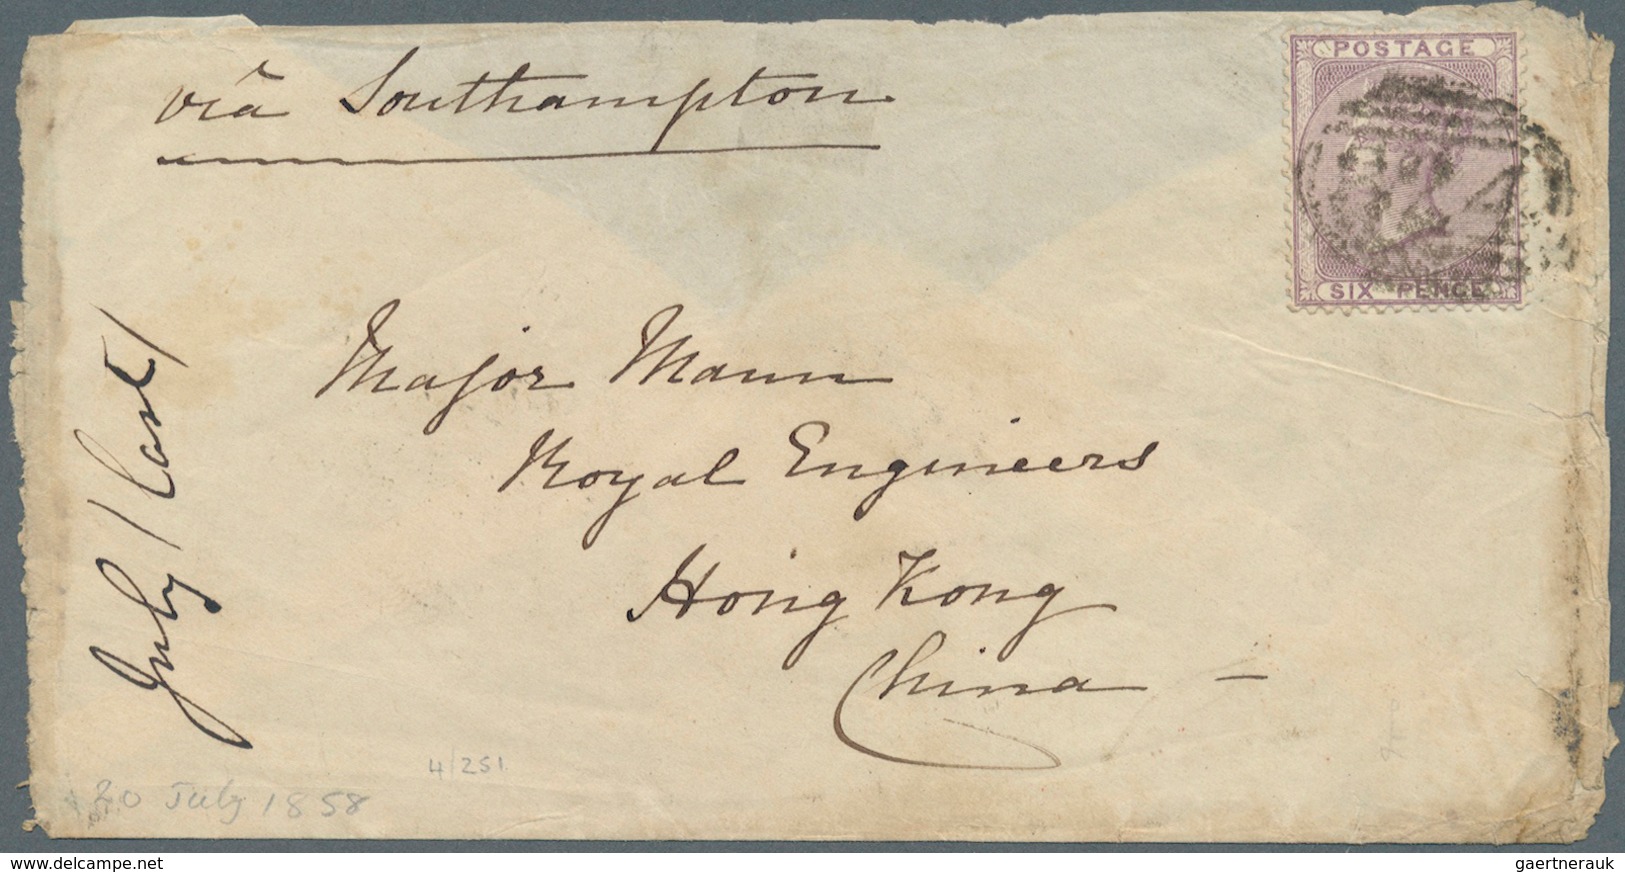 via Southampton
POSTAGE
SIX PENCE
Major Mann
Royal Engineers
Hong Kong
China –
July / Cash /
4/251
20 July 1858
www.delcampe.net
gaertnerauk